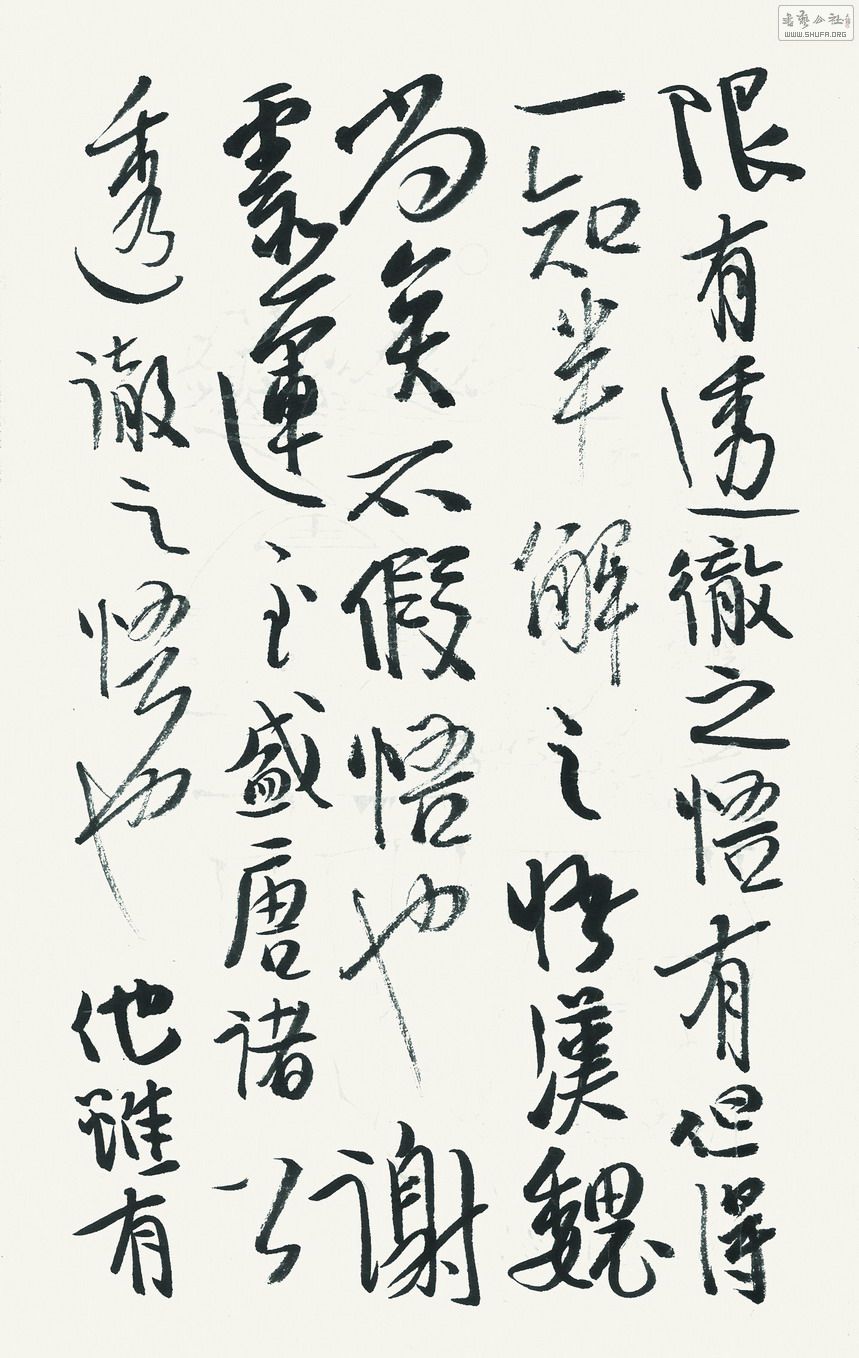 限有透徹之悟有但得
一知半解之悟漢魏
尚矣不假悟也謝
靈運至盛唐諸公
透徹之悟也他雖有
書藝公社
WWW.SHUFA.ORG